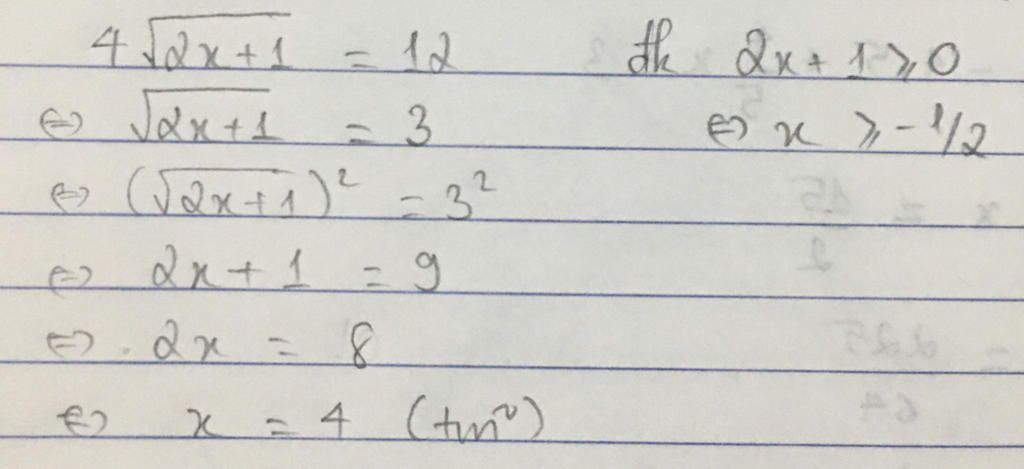 4√(2x+1) = 12 đk 2x+1 ≥ 0
⇔ √(2x+1) = 3 ⇔ x ≥ -1/2
⇔ (√(2x+1))² = 3²
⇔ 2x+1 = 9
⇔ 2x = 8
⇔ x = 4 (tm)